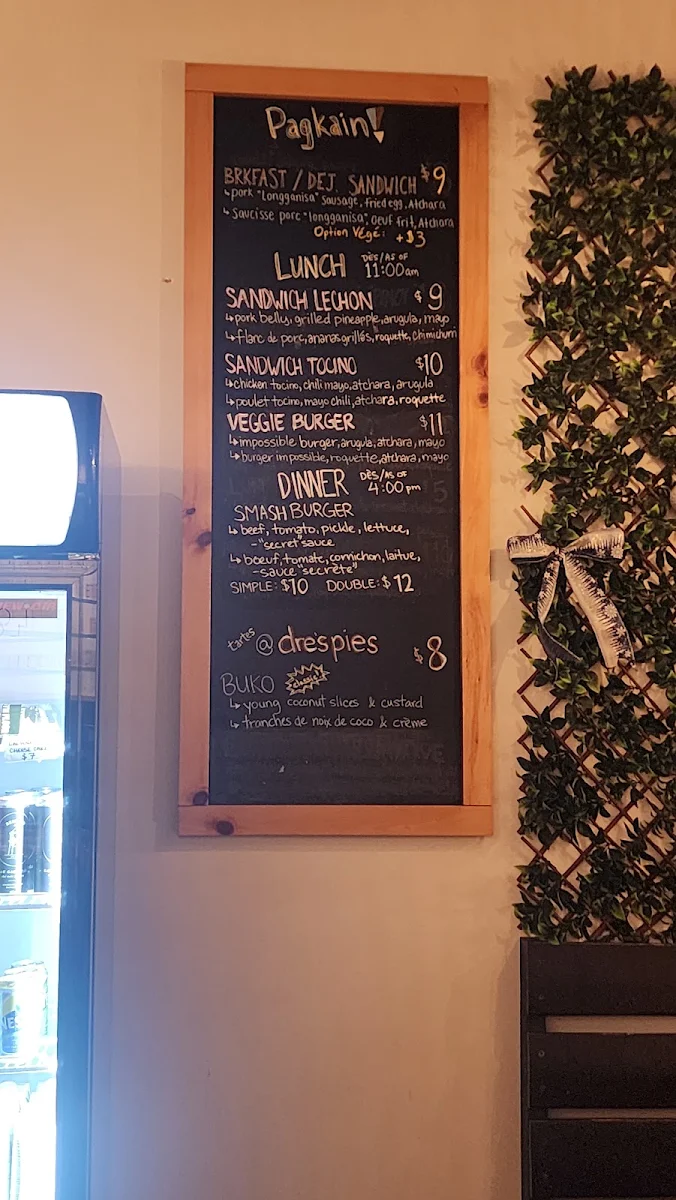 Pagkain!
BRKFAST / DEJ. SANDWICH $9
↳ pork "Longganisa" sausage, fried egg, Atchara
↳ saucisse porc "longganisa", oeuf frit, Atchara
Option Végé: +$3
LUNCH DÈS/AS OF 11:00am
SANDWICH LECHON $9
↳ pork belly, grilled pineapple, arugula, mayo
↳ flanc de porc, ananas grillés, roquette, chimichurri
SANDWICH TOCINO $10
↳ chicken tocino, chili mayo, atchara, arugula
↳ poulet tocino, mayo chili, atchara, roquette
VEGGIE BURGER $11
↳ impossible burger, arugula, atchara, mayo
↳ burger impossible, roquette, atchara, mayo
DINNER DÈS/AS OF 4:00pm
SMASH BURGER
↳ beef, tomato, pickle, lettuce,
- "secret" sauce
↳ bœuf, tomate, cornichon, laitue,
- sauce "secrète"
SIMPLE: $10 DOUBLE: $12
tartes @ dre's pies $8
BUKO classic
↳ young coconut slices & custard
↳ tranches de noix de coco & crème
CHEESE CAKE
$7